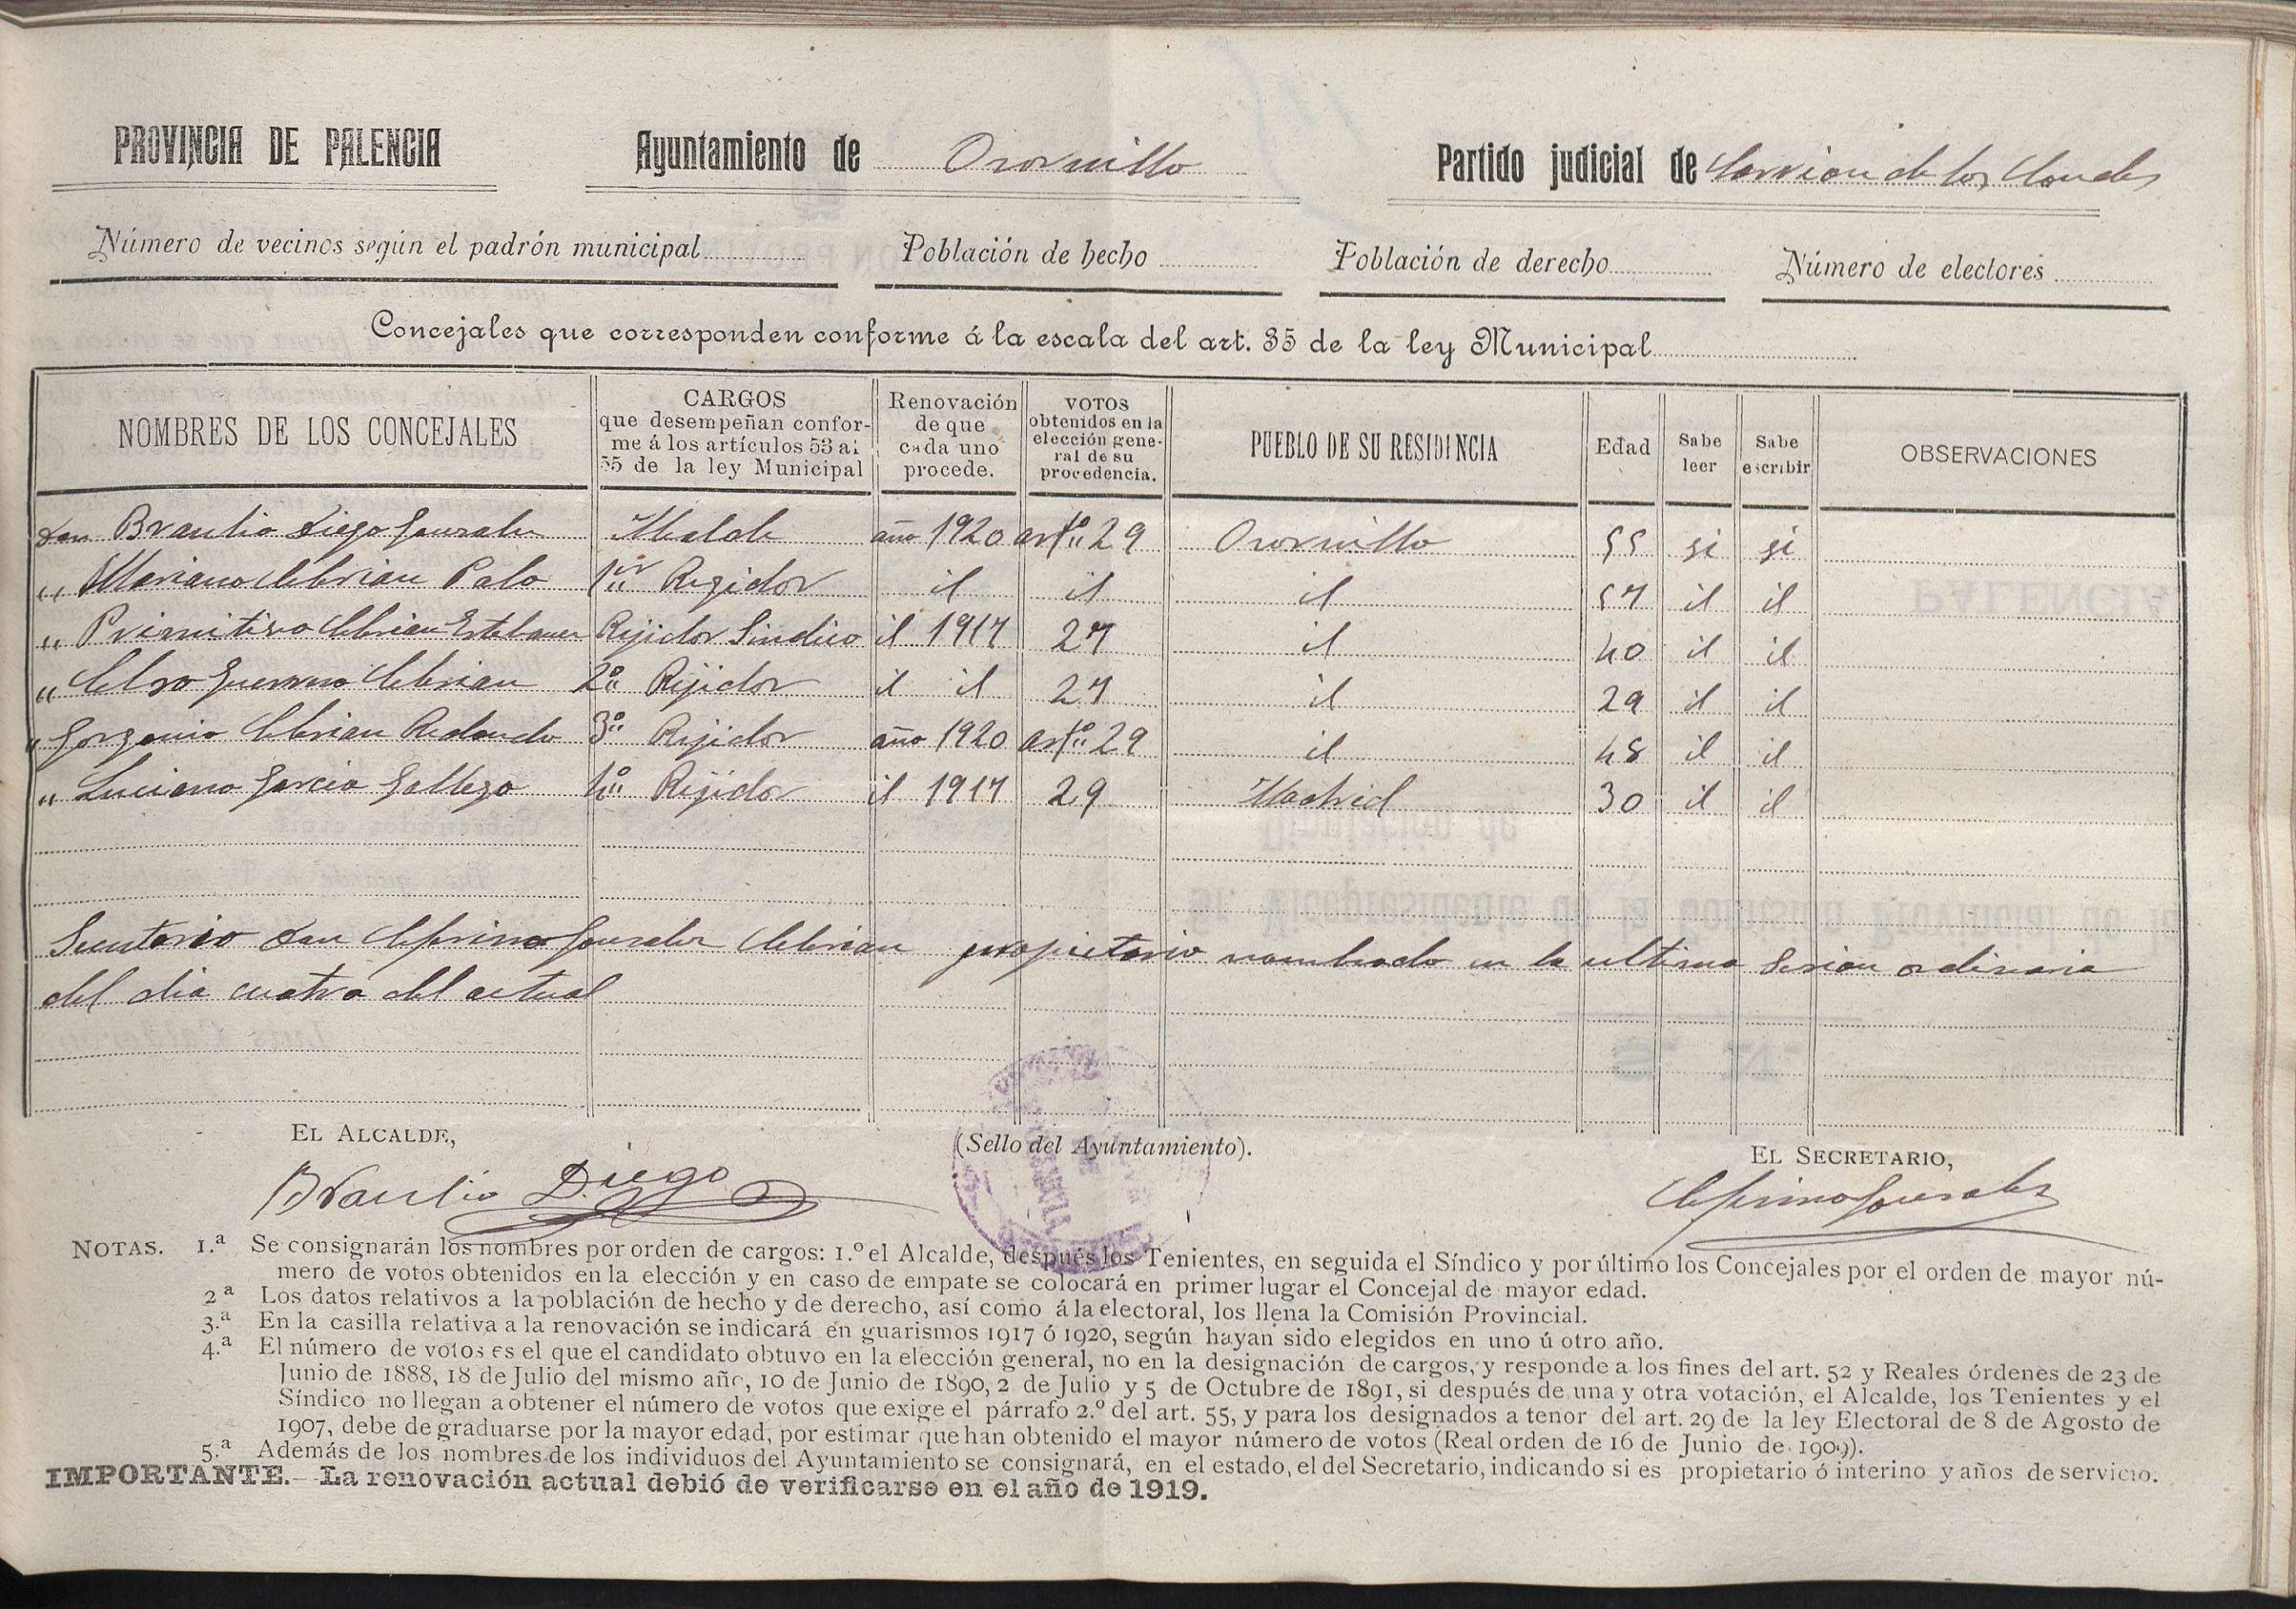 PROVINCIA DE PALENCIA Ayuntamiento de Osornillo Partido judicial de Carrion de los Condes
Número de vecinos según el padrón municipal Población de hecho Población de derecho Número de electores
Concejales que corresponden conforme á la escala del art. 35 de la ley Municipal
NOMBRES DE LOS CONCEJALES CARGOS que desempeñan conforme á los artículos 53 al 55 de la ley Municipal Renovación de que cada uno procede. VOTOS obtenidos en la elección general de su procedencia. PUEBLO DE SU RESIDENCIA Edad Sabe leer Sabe escribir OBSERVACIONES
Don Braulio Diego Gonzalez Alcalde año 1920 artº 29 Osornillo 55 si si
„ Mariano Cebrian Polo 1er Regidor id id id 57 id id
„ Primitivo Cebrian Estebanez Rejidor Sindico id 1917 27 id 40 id id
„ Celso Guerrero Cebrian 2º Rejidor id id 27 id 29 id id
„ Gorgonio Cebrian Redondo 3º Rejidor año 1920 artº 29 id 48 id id
„ Luciano Garcia Gallego 4º Rejidor id 1917 29 Madrid 30 id id
Secretario Don Ceferino Gonzalez Cebrian propietario nombrado en la ultima sesion ordinaria
del dia cuatro del actual
EL ALCALDE, (Sello del Ayuntamiento). EL SECRETARIO,
Braulio Diego Ceferino Gonzalez
NOTAS. 1.ª Se consignarán los nombres por orden de cargos: 1.º el Alcalde, después los Tenientes, en seguida el Síndico y por último los Concejales por el orden de mayor nú-
mero de votos obtenidos en la elección y en caso de empate se colocará en primer lugar el Concejal de mayor edad.
2ª Los datos relativos a la población de hecho y de derecho, así como á la electoral, los llena la Comisión Provincial.
3.ª En la casilla relativa a la renovación se indicará en guarismos 1917 ó 1920, según hayan sido elegidos en uno ú otro año.
4.ª El número de votos es el que el candidato obtuvo en la elección general, no en la designación de cargos, y responde a los fines del art. 52 y Reales órdenes de 23 de
Junio de 1888, 18 de Julio del mismo año, 10 de Junio de 1890, 2 de Julio y 5 de Octubre de 1891, si después de una y otra votación, el Alcalde, los Tenientes y el
Síndico no llegan a obtener el número de votos que exige el párrafo 2.º del art. 55, y para los designados a tenor del art. 29 de la ley Electoral de 8 de Agosto de
1907, debe de graduarse por la mayor edad, por estimar que han obtenido el mayor número de votos (Real orden de 16 de Junio de 1909).
5.ª Además de los nombres de los individuos del Ayuntamiento se consignará, en el estado, el del Secretario, indicando si es propietario ó interino y años de servicio.
IMPORTANTE.—La renovación actual debió de verificarse en el año de 1919.